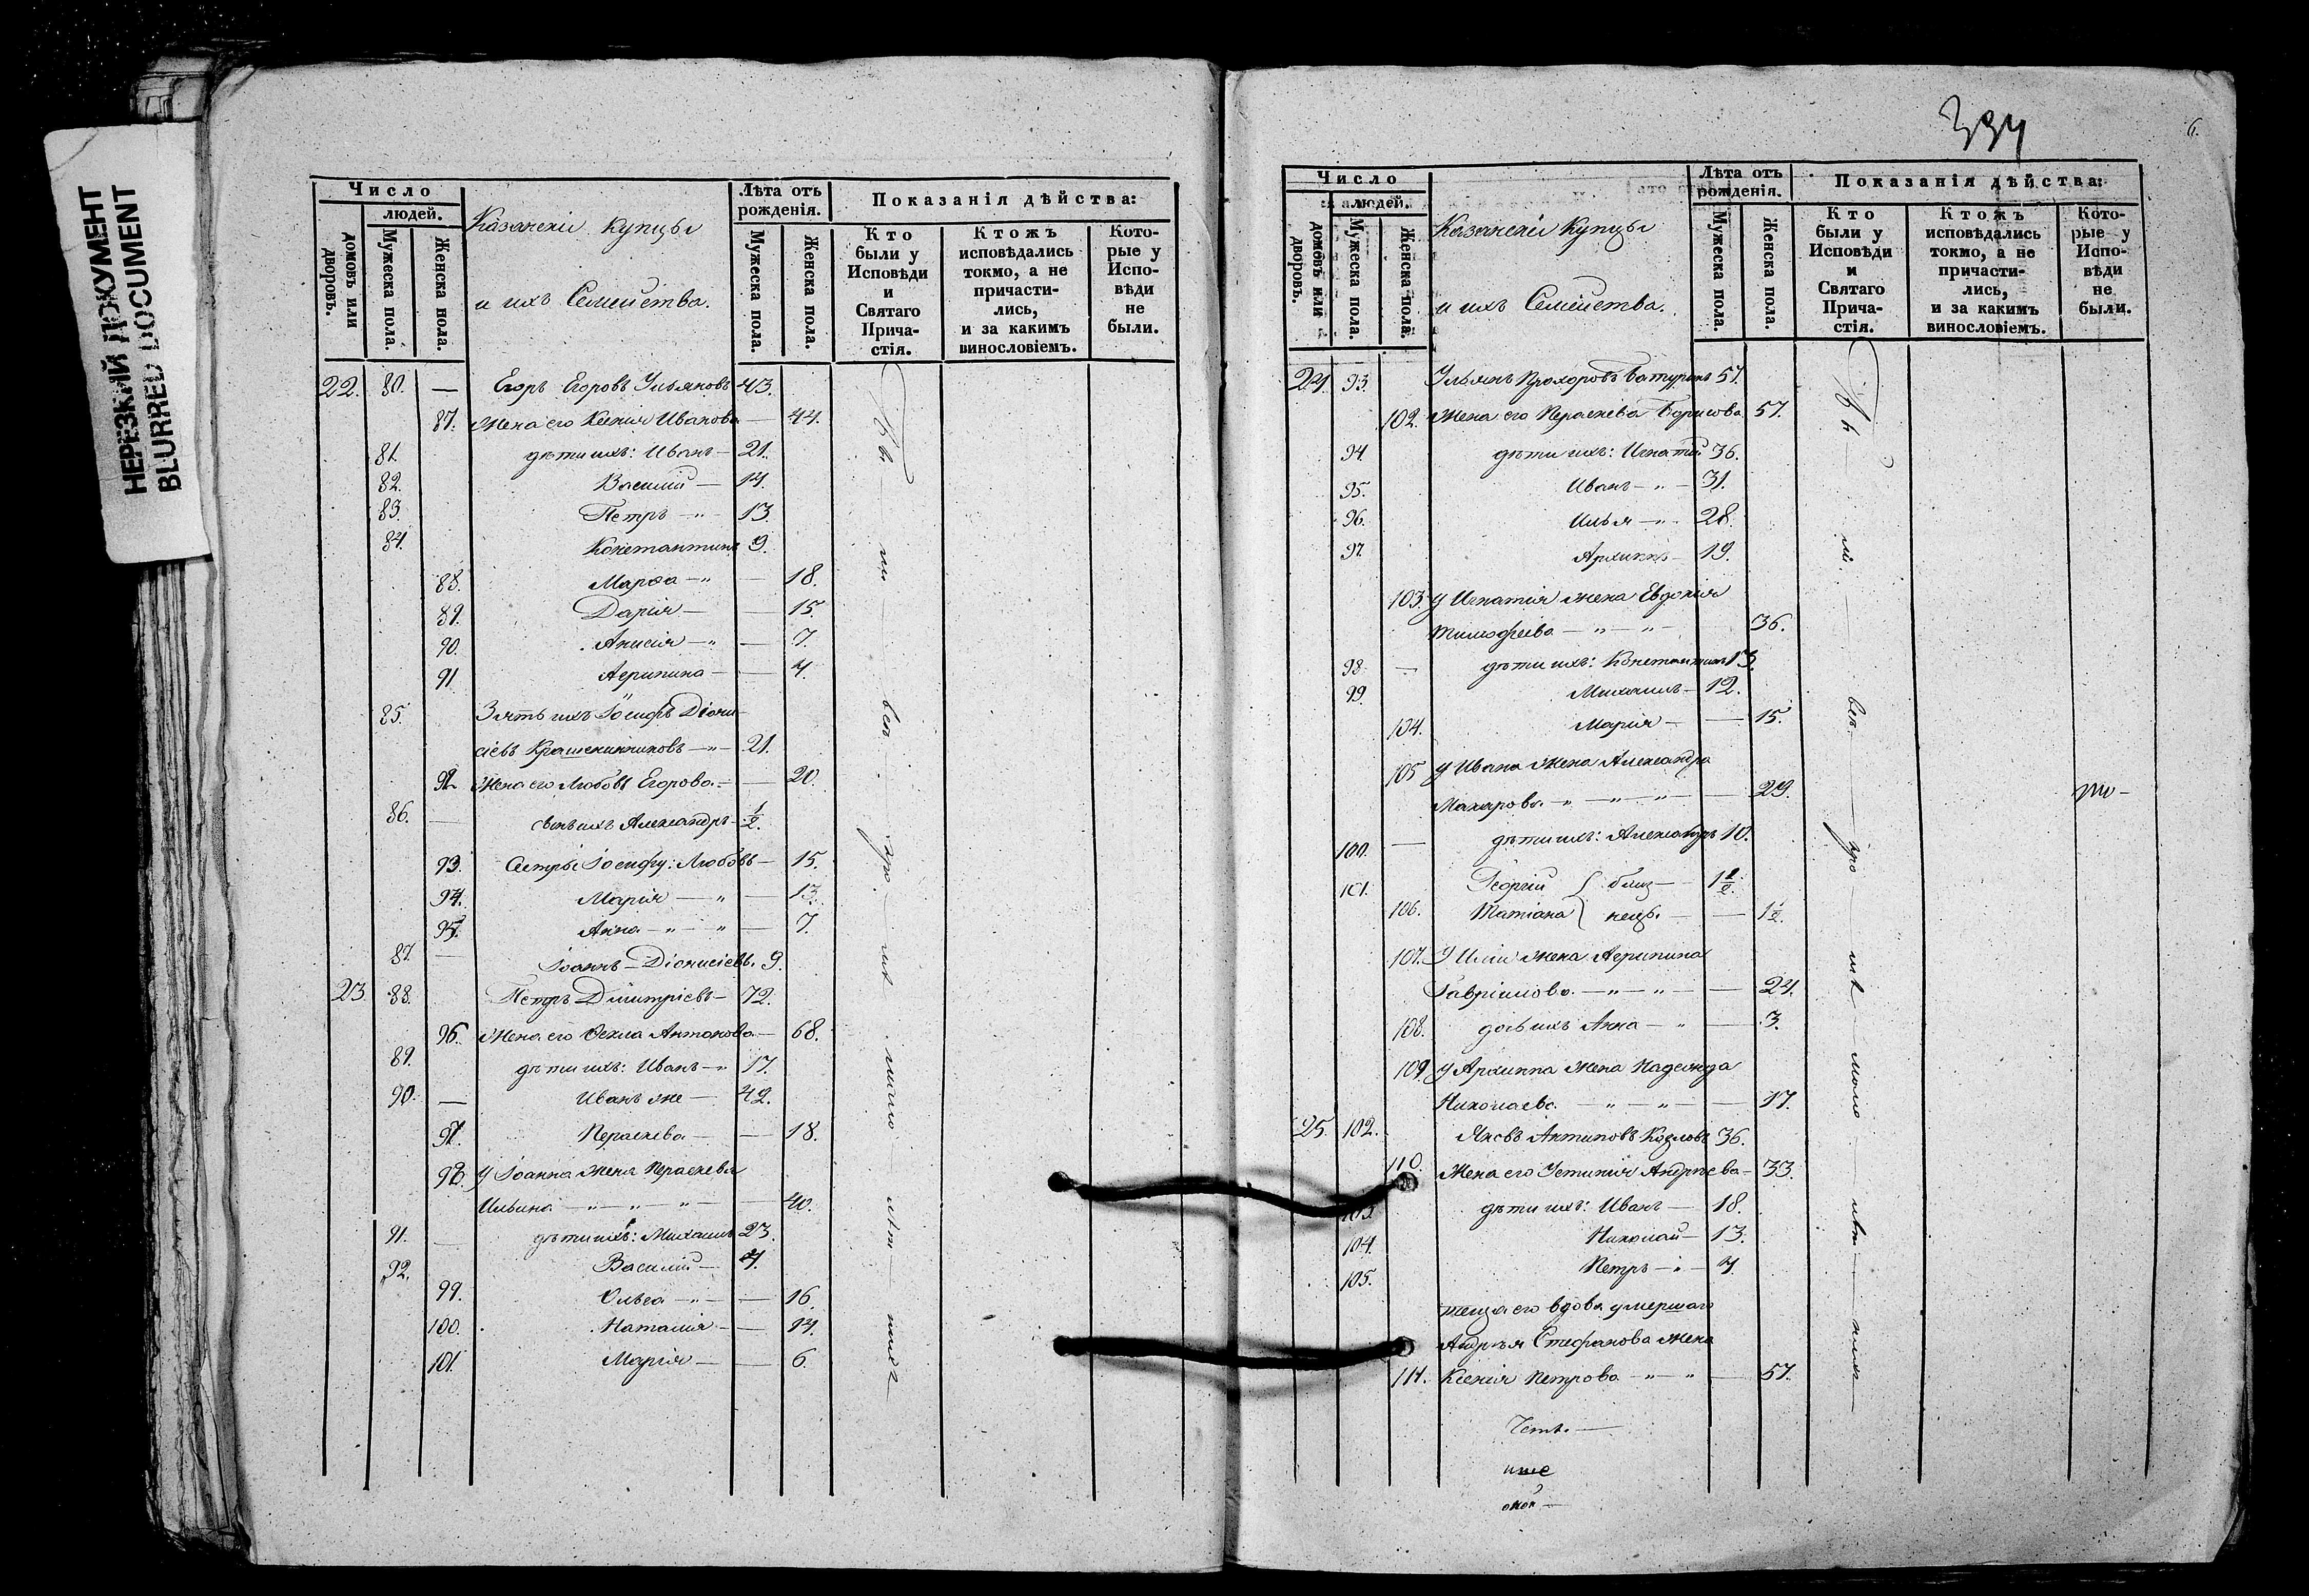 НЕРЕЗКИЙ ДОКУМЕНТ
BLURRED DOCUMENT
Число
людей.
домовъ или дворовъ.
Мужеска пола.
Женска пола.
Казанскіе купцы
и ихъ Семейства.
Лѣта отъ рожденія.
Мужеска пола.
Женска пола.
Показанія дѣйства:
Кто были у Исповѣди и Святаго Прича-стія.
Ктожъ исповѣдались токмо, а не причасти-лись, и за какимъ винословіемъ.
Кото-рые у Испо-вѣди не были.
22. 80. — Егоръ Егоровъ Ульяновъ 43.
87. Жена его Ксенія Иванова — 44.
81. дѣти ихъ: Иванъ — 21.
82. Василій — 14.
83. Петръ — " 13.
84. Константинъ 9.
88. Марѳа — " — 18.
89. Дарія — — 15.
90. Анисія — " — 7.
91 Агрипина — — 4.
85. Зять ихъ Іосифъ Діони-
сіевъ Крашенинниковъ — " — 21.
92 Жена его Любовь Егорова — — 20.
86. — сынъ ихъ Александръ — 1/2.
93. Сестры Іосифу: Любовь — 15.
94. Марія — " — 13.
95. Анна — " — " — 7.
87. — Іоаннъ — Діонисіевъ. 9.
23. 88. Петръ Димитріевъ — 72.
96. Жена его Ѳекла Антонова — 68.
89. дѣти ихъ: Иванъ — " 17.
90. — Иванъ же — 42.
97. Параскева — — 18.
98. У Іоанна жена Параскева
Ильина — " — " — " — — 40.
91. — дѣти ихъ: Михаилъ 23.
92. Василій — 4.
99. Ольга — " — — 16.
100. Наталія — — 14.
101. Марія — — 6.
394
6.
Число
людей.
домовъ или дворовъ.
Мужеска пола.
Женска пола.
Казанскіе Купцы
и ихъ Семейства.
Лѣта отъ рожденія.
Мужеска пола.
Женска пола.
Показанія дѣйства:
Кто были у Исповѣди и Святаго Прича-стія.
Ктожъ исповѣдались токмо, а не причасти-лись, и за какимъ винословіемъ.
Кото-рые у Испо-вѣди не были.
24. 93. Ульянъ Прохоровъ Батуринъ 57.
102. Жена его Параскева Борисова 57.
94. дѣти ихъ: Игнатій 36.
95. Иванъ — " — 31.
96. Илья — " 28.
97. Архиппъ — 19.
103. У Игнатія жена Евдокія
Тимофеева — " — " — 36.
98. — дѣти ихъ: Константинъ 13.
99. Михаилъ — 12.
104. Марія — — 15.
105 У Ивана жена Александра
Макарова — " — " — " — — 29.
100. — дѣти ихъ: Александръ 10.
101. Георгій { близ — 1 1/2.
106. Татіана { нецы — — 1 1/2.
107. У Иліи жена Агрипина
Гавріилова. — " — " — — 24.
108. дочь ихъ Анна — " — 3.
109. У Архиппа жена Надежда
Николаева. — " — " — — 17.
25. 102. Яковъ Антиповъ Козловъ 36.
110. Жена его Устинія Андреева — 33.
103. дѣти ихъ: Иванъ — 18.
104. Николай — 13.
105. Петръ — " — 4.
теща его вдова умершаго
Андрея Стефанова жена
111. Ксенія Петрова — " — " — 57.